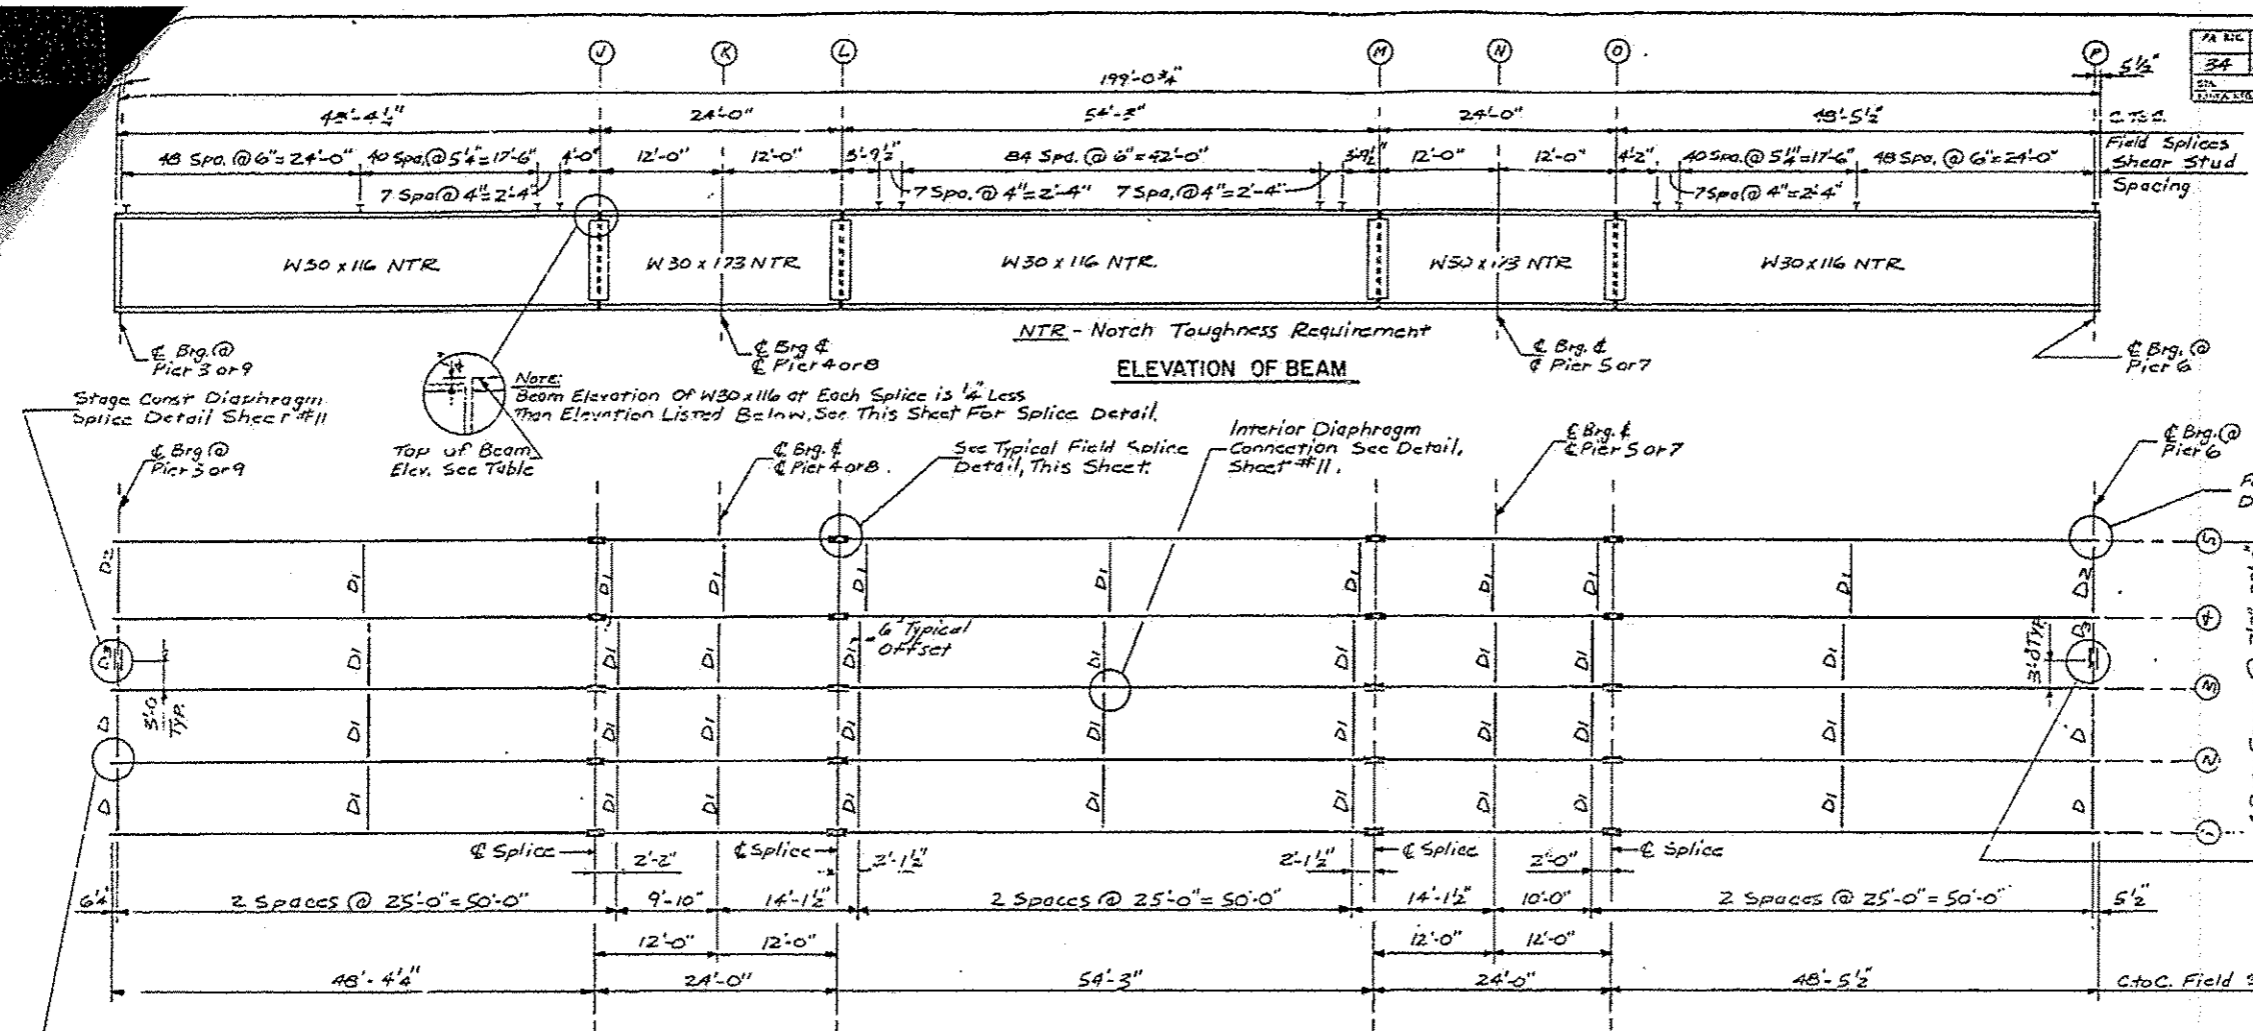 J K L M N O P
FA RTE
34
199'-0 3/4"
5 1/2"
48'-4 1/4" 24'-0" 54'-3" 24'-0" 48'-5 1/2" C. To C.
Field Splices
48 Spa. @ 6"=24'-0" 40 Spa. @ 5 1/4"=17'-6" 4'-0" 12'-0" 12'-0" 3'-9 1/2" 84 Spa. @ 6"=42'-0" 3'-9 1/2" 12'-0" 12'-0" 4'-2" 40 Spa. @ 5 1/4"=17'-6" 48 Spa. @ 6"=24'-0"
Shear Stud
Spacing
7 Spa @ 4"=2'-4" 7 Spa. @ 4"=2'-4" 7 Spa. @ 4"=2'-4" 7 Spa @ 4"=2'-4"
W30 x 116 NTR. W30 x 173 NTR. W30 x 116 NTR. W30 x 173 NTR W30 x 116 NTR.
NTR - Notch Toughness Requirement
ELEVATION OF BEAM
℄ Brg. @
Pier 3 or 9
℄ Brg. &
℄ Pier 4 or 8
℄ Brg. &
℄ Pier 5 or 7
℄ Brg. @
Pier 6
Note:
Beam Elevation Of W30x116 at Each Splice is 1/4" Less
Than Elevation Listed Below. See This Sheet For Splice Detail.
Top of Beam
Elev. See Table
Stage Const Diaphragm
Splice Detail Sheet #11
℄ Brg @
Pier 3 or 9
℄ Brg. &
℄ Pier 4 or 8.
See Typical Field Splice
Detail, This Sheet.
Interior Diaphragm
Connection See Detail,
Sheet #11.
℄ Brg. &
℄ Pier 5 or 7
℄ Brg. @
Pier 6
5
D2 D1 D1 D1 D1 D1 D1 D1 D1 D1 D2
4
6" Typical
Offset
D3 D1 D1 D1 D1 D1 D1 D1 D1 D1 D3
3'-0
TYP.
3'-0 TYP.
3
D D1 D1 D1 D1 D1 D1 D1 D1 D1 D
2
D D1 D1 D1 D1 D1 D1 D1 D1 D1 D
1
℄ Splice ℄ Splice ℄ Splice ℄ Splice
2'-2" 2'-1 1/2" 2'-1 1/2" 2'-0"
6 1/4" 2 Spaces @ 25'-0"=50'-0" 9'-10" 14'-1 1/2" 2 Spaces @ 25'-0"=50'-0" 14'-1 1/2" 10'-0" 2 Spaces @ 25'-0"=50'-0" 5 1/2"
12'-0" 12'-0" 12'-0" 12'-0"
48'-4 1/4" 24'-0" 54'-3" 24'-0" 48'-5 1/2" C. to C. Field